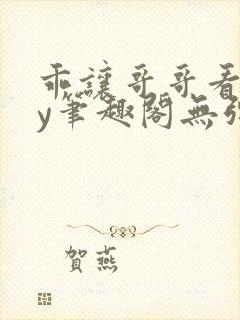 乖讓哥哥看
y筆趣閣無彈
賀燕